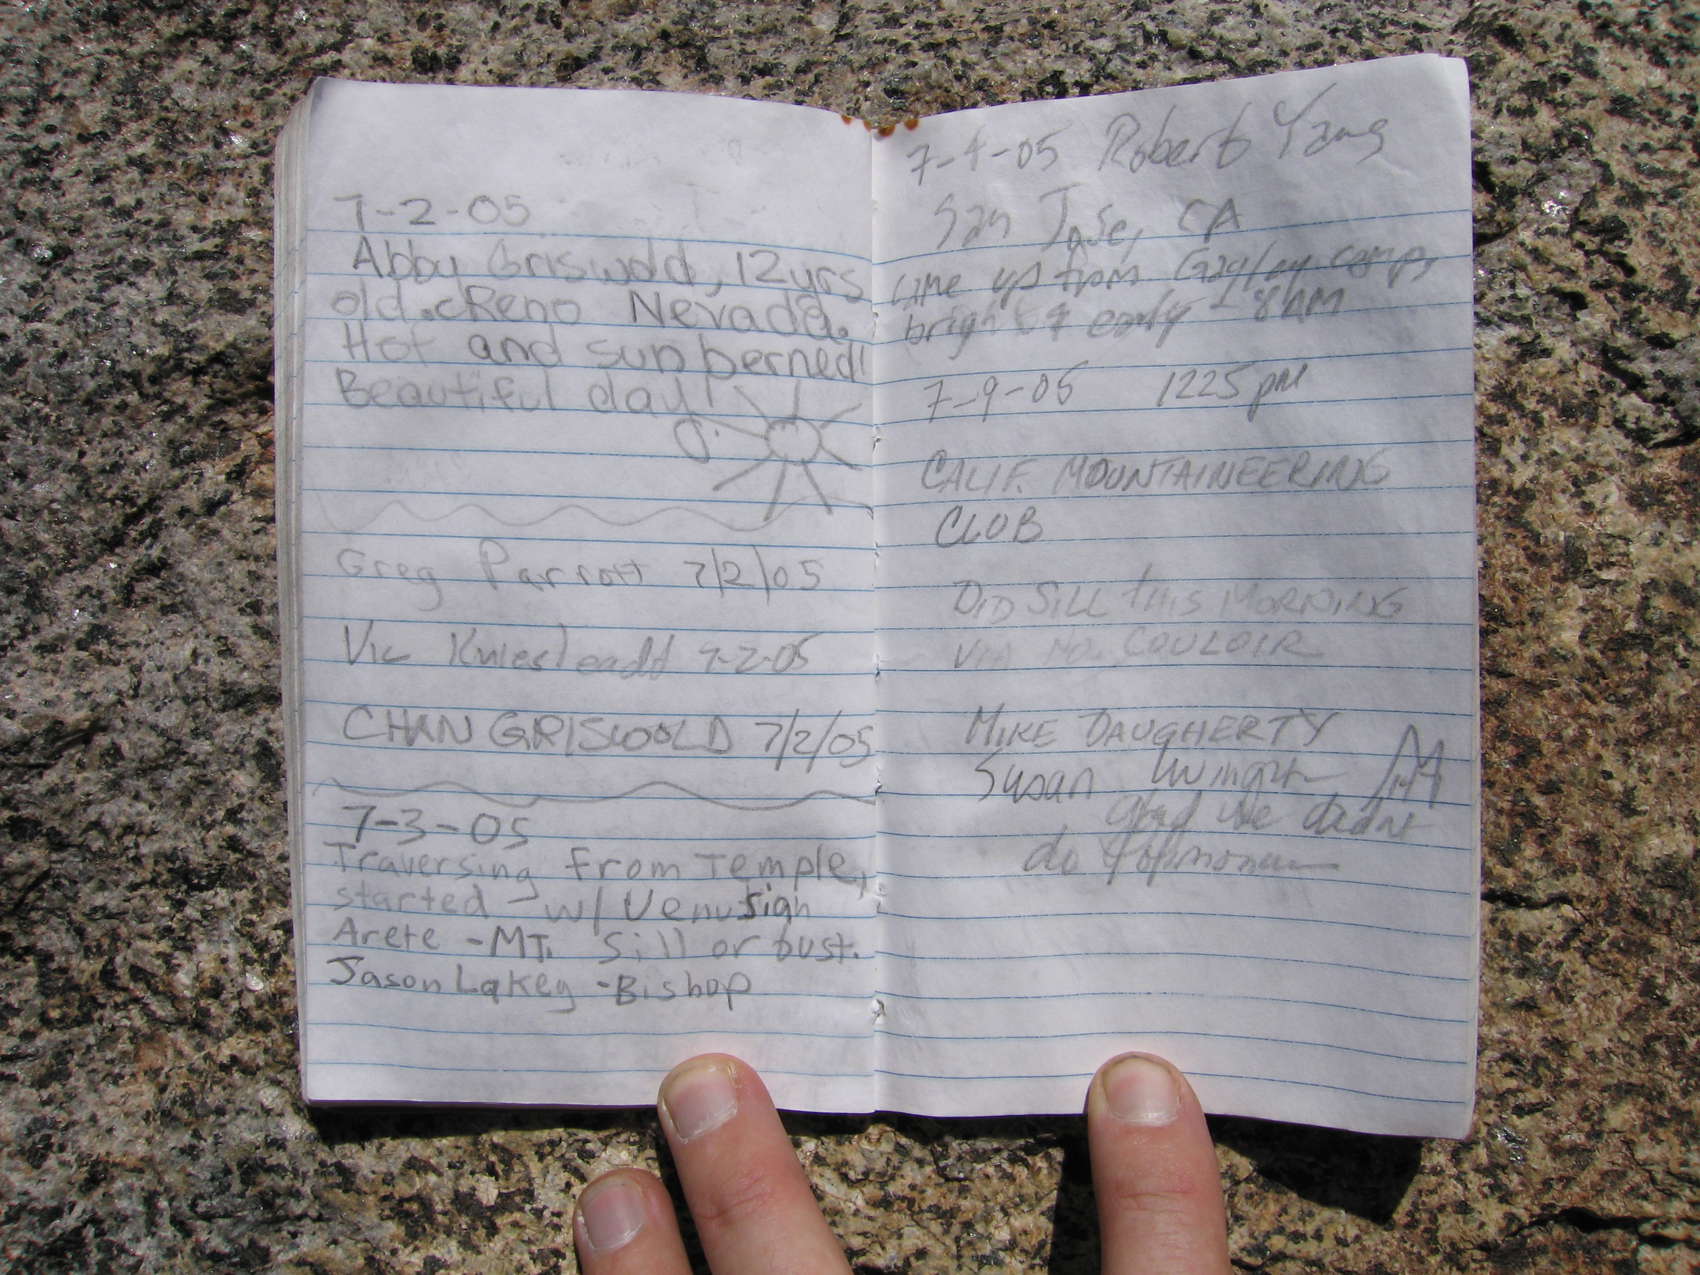 7-2-05
Abby Griswold, 12yrs
old. Reno Nevada.
Hot and sun berned!
Beautiful day!
Greg Parrott 7/2/05
Vic 7-2-05
CHAN GRISWOLD 7/2/05
7-3-05
Traversing from Temple,
started w/ Venusian
Arete - MT. Sill or bust.
Jason Lakey - Bishop
7-4-05 Robert Yang
San Jose, CA
came up from Gayley camp,
bright & early - 8AM
7-9-05 1225 pm
CALIF. MOUNTAINEERING
CLUB
DID SILL THIS MORNING
VIA NO. COULOIR
MIKE DAUGHERTY
Susan
glad we didn't
do